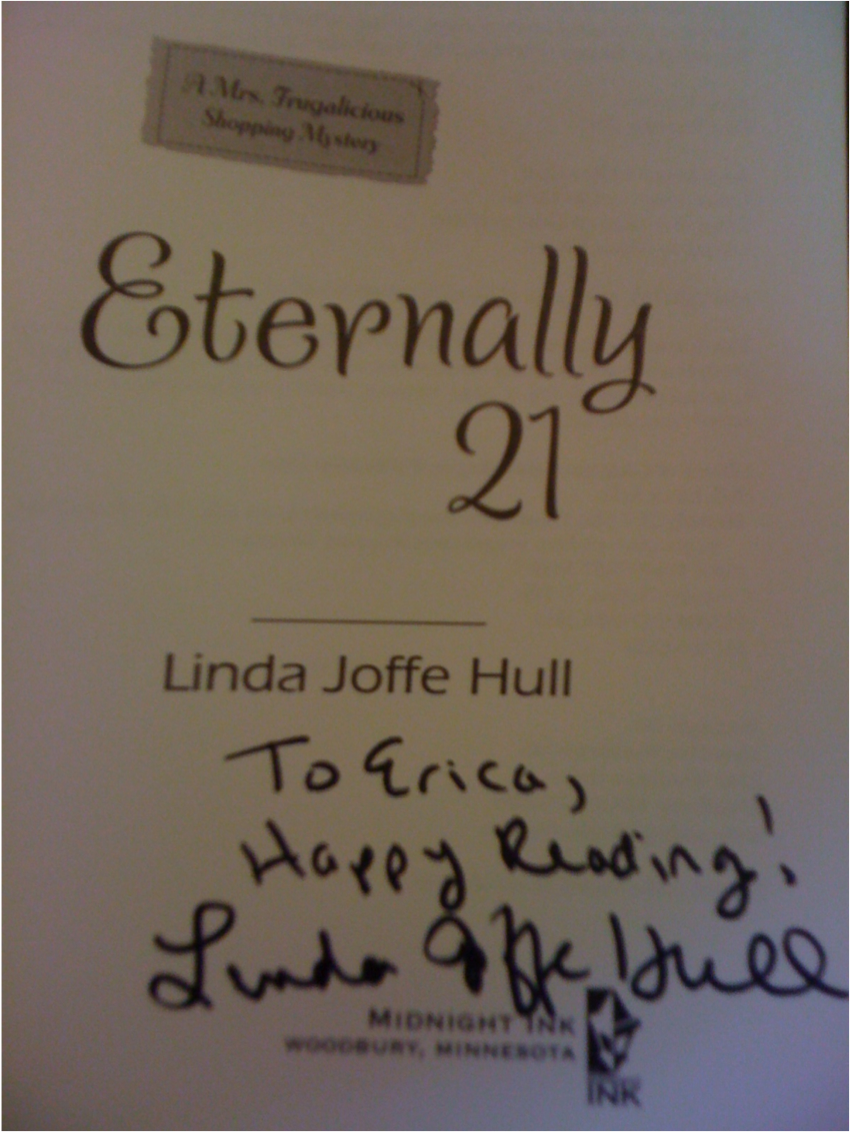 A Mrs. Frugalicious
Shopping Mystery
Eternally
21
Linda Joffe Hull
To Erica,
Happy Reading!
Linda Joffe Hull
MIDNIGHT INK
WOODBURY, MINNESOTA
INK